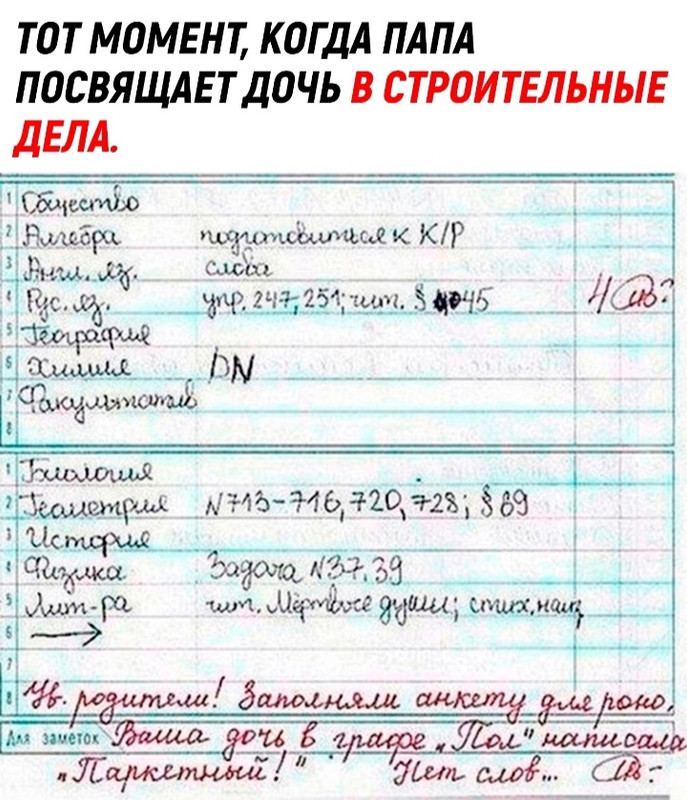 ТОТ МОМЕНТ, КОГДА ПАПА
ПОСВЯЩАЕТ ДОЧЬ В СТРОИТЕЛЬНЫЕ
ДЕЛА.
1 Общество
2 Алгебра подготовиться к К/Р
3 Англ. яз. слова
4 Рус. яз. упр. 247, 251; чит. § 45 4
5 География
6 Химия
7 Факультатив
8
1 Биология
2 Геометрия N713-716, 720, 728; § 89
3 История
4 Физика Задача N37, 39
5 Лит-ра чит. Мёртвые души; стих. наиз
6 →
7
8 Ув. родители! Заполняли анкету для роно.
Для заметок Ваша дочь в графе „Пол" написала
„Паркетный!" Нет слов...